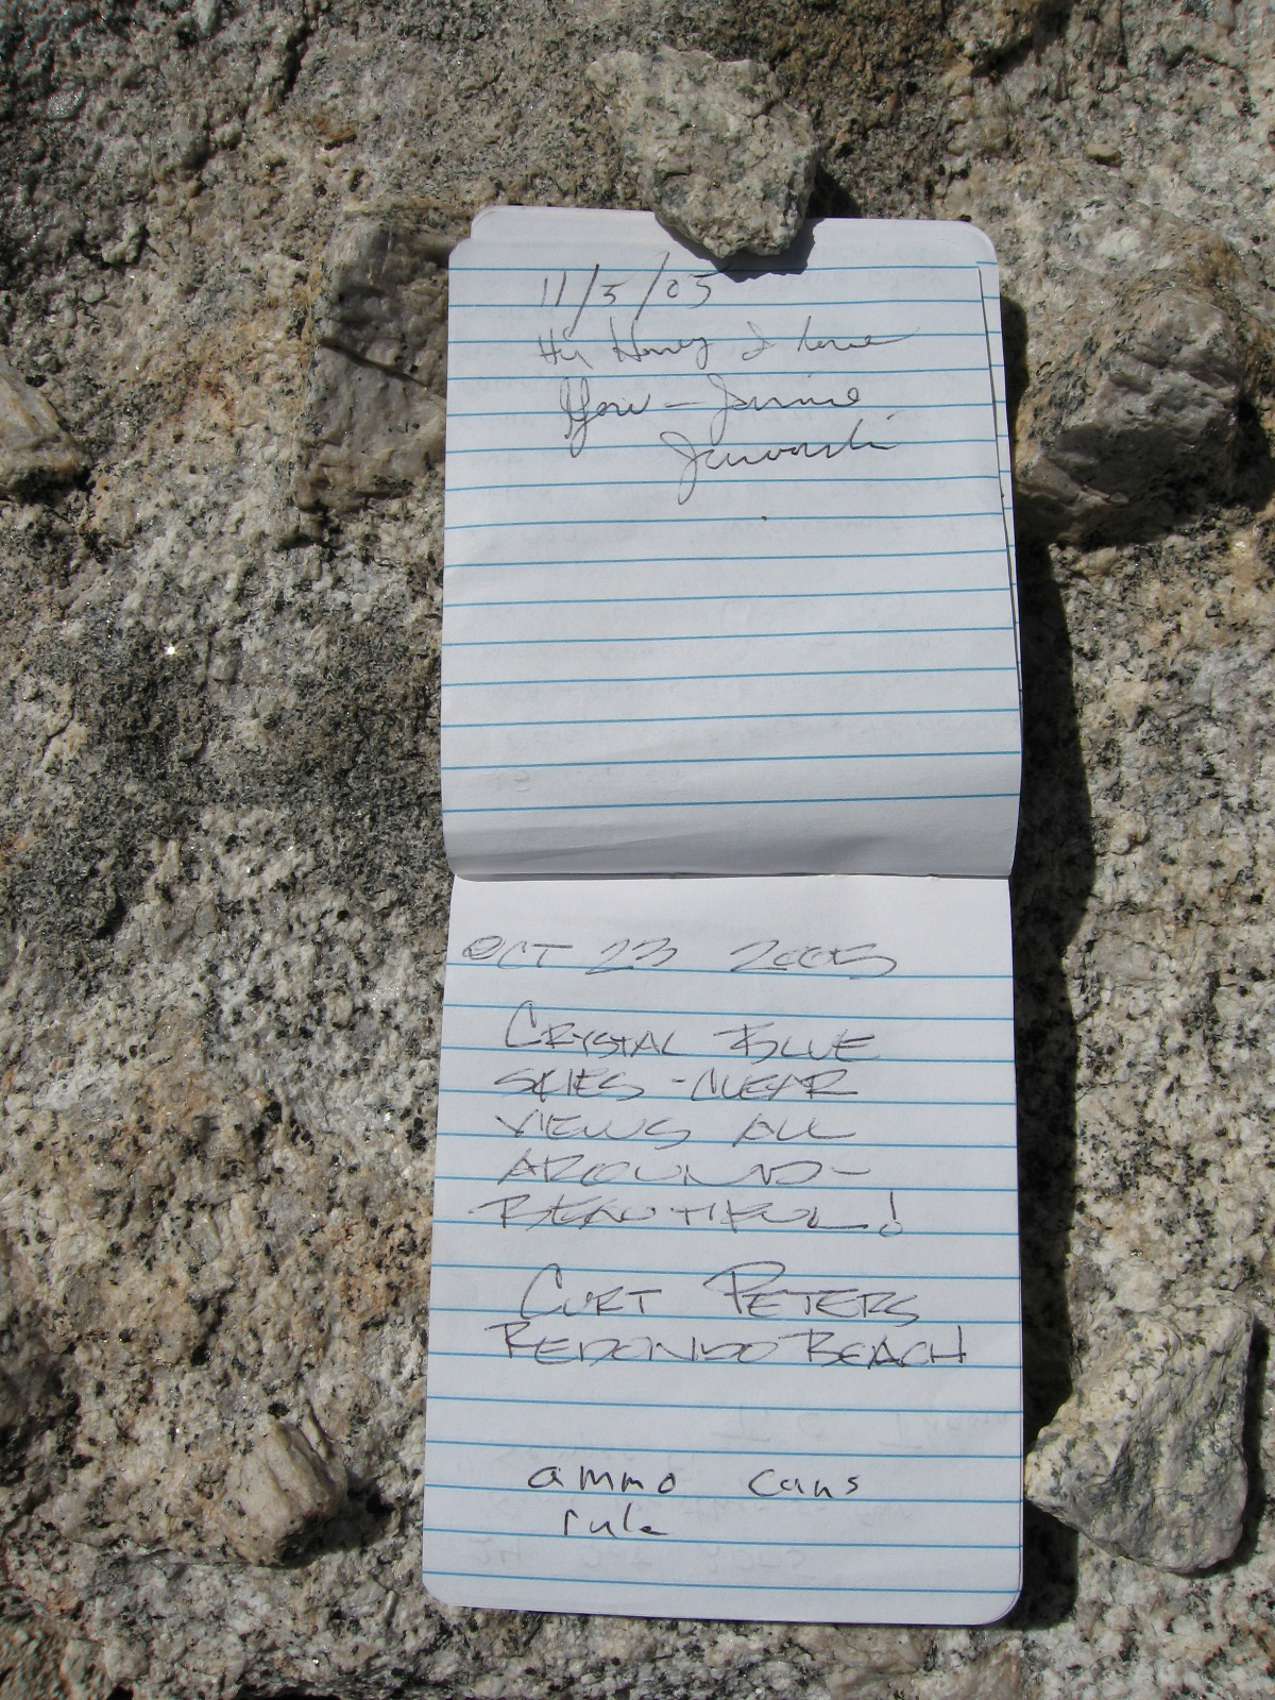 11/5/05
Hi Honey I love
You - Jannie
OCT 23 2005
CRYSTAL BLUE
SKIES - CLEAR
VIEWS ALL
AROUND -
BEAUTIFUL!
CURT PETERS
REDONDO BEACH
ammo cans
rule